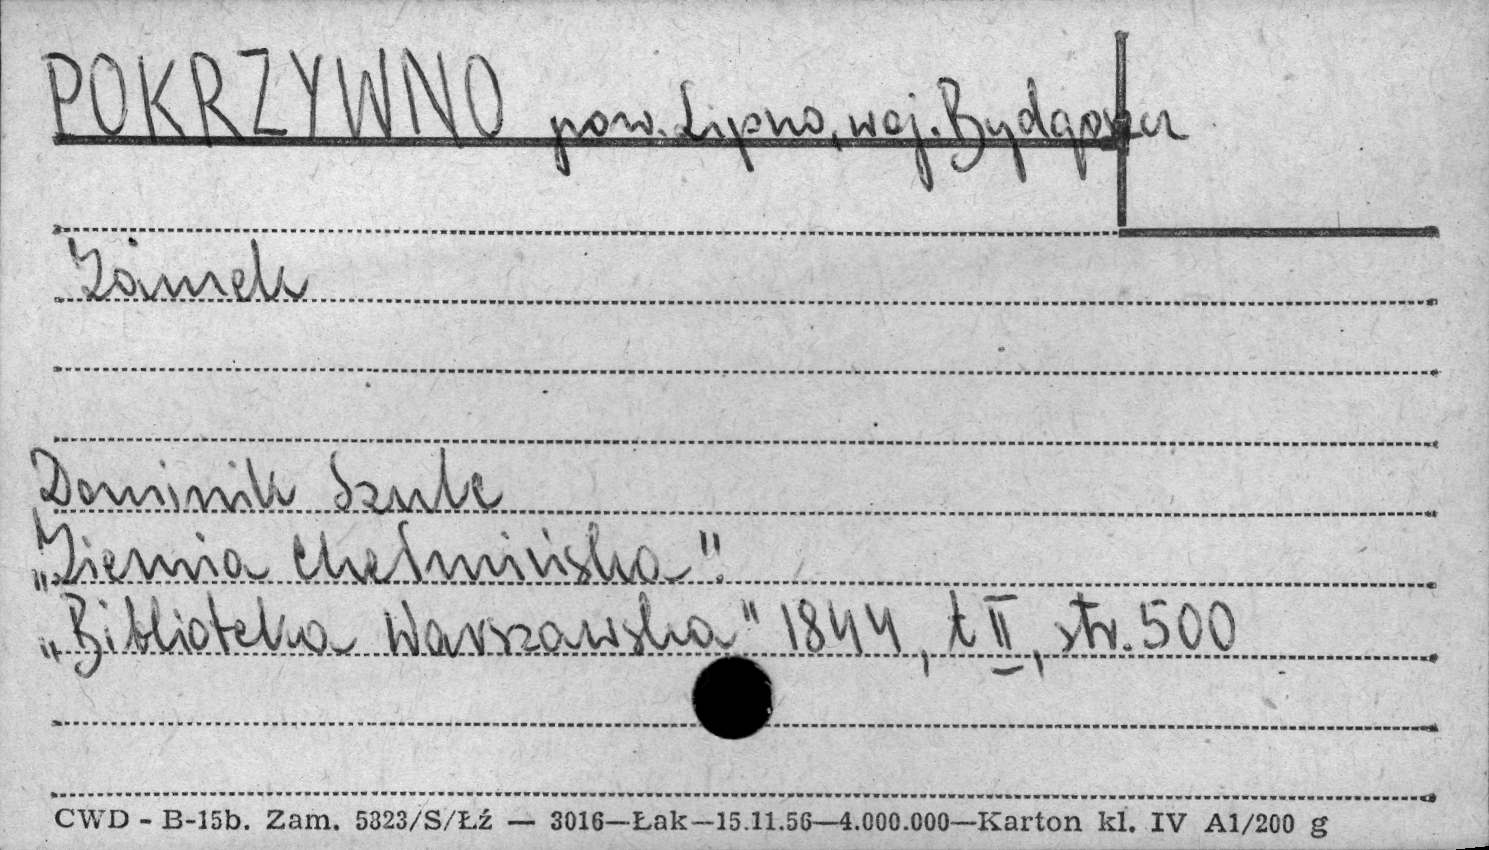 POKRZYWNO pow. Lipno, woj. Bydgoszcz
Zamek
Dominik Szulc
„Ziemia Chełmińska".
„Biblioteka Warszawska" 1844, t II, str. 500
CWD - B-15b. Zam. 5323/S/Łź — 3016—Łak—15.11.56—4.000.000—Karton kl. IV A1/200 g